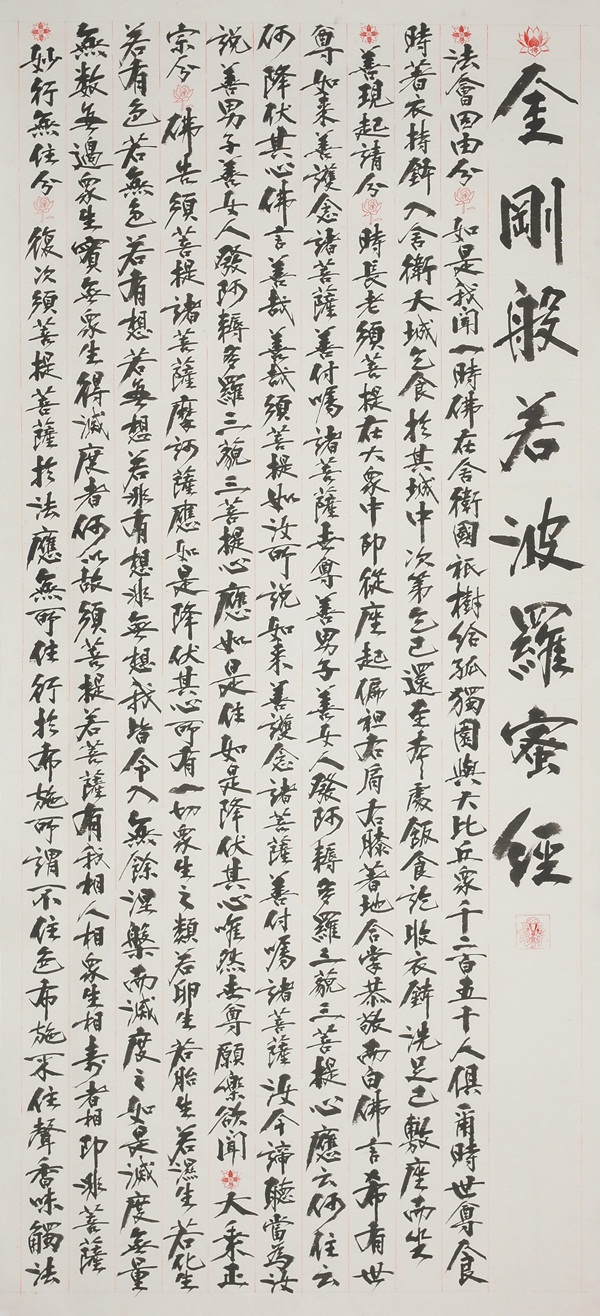 金剛般若波羅蜜經
法會因由分 如是我聞一時佛在舍衛國祇樹給孤獨園與大比丘眾千二百五十人俱爾時世尊食
時著衣持鉢入舍衛大城乞食於其城中次第乞已還至本處飯食訖收衣鉢洗足已敷座而坐
善現起請分 時長老須菩提在大眾中即從座起偏袒右肩右膝著地合掌恭敬而白佛言希有世
尊如来善護念諸菩薩善付囑諸菩薩世尊善男子善女人發阿耨多羅三藐三菩提心應云何住云
何降伏其心佛言善哉善哉須菩提如汝所說如来善護念諸菩薩善付囑諸菩薩汝今諦聽當為汝
說善男子善女人發阿耨多羅三藐三菩提心應如是住如是降伏其心唯然世尊願樂欲聞 大乘正
宗分 佛告須菩提諸菩薩摩訶薩應如是降伏其心所有一切眾生之類若卵生若胎生若濕生若化生
若有色若無色若有想若無想若非有想非無想我皆令入無餘涅槃而滅度之如是滅度無量
無数無邊眾生實無眾生得滅度者何以故須菩提若菩薩有我相人相眾生相壽者相即非菩薩
妙行無住分 復次須菩提菩薩於法應無所住行於布施所謂不住色布施不住聲香味觸法